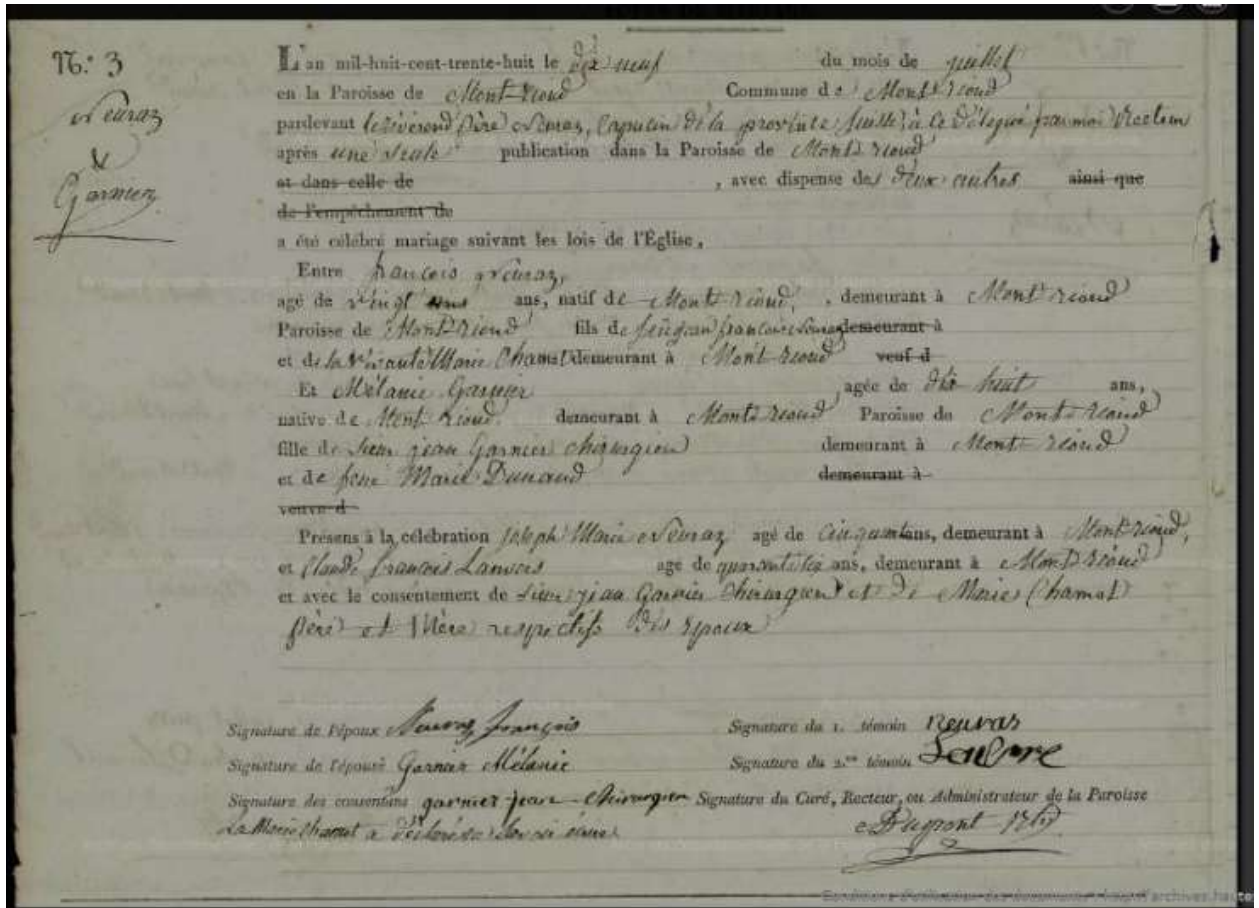 N.° 3
Neuraz
&
Garnier
L'an mil-huit-cent-trente-huit le dix neuf du mois de juillet
en la Paroisse de Mont-riond Commune de Mont riond
pardevant le révérend père Neuraz, Capucin de la province suisse, à ce délégué par moi Recteur
après une seule publication dans la Paroisse de Mont riond
et dans celle de , avec dispense des deux autres ainsi que
de l'empêchement de
a été célébré mariage suivant les lois de l'Église,
Entre françois Neuraz,
agé de vingt ans, natif de Mont riond, , demeurant à Mont riond
Paroisse de Mont riond fils de feu jean françois Neuraz demeurant à
et de la vivante Marie Chamot demeurant à Mont riond veuf d
Et Mélanie Garnier agée de dix huit ans,
native de Mont riond demeurant à Mont riond Paroisse de Mont riond
fille de sieur jean Garnier chirurgien demeurant à Mont riond
et de feue Marie Dunand demeurant à
veuve d
Présens à la célébration joseph Marie Neuraz agé de cinquante ans, demeurant à Mont riond,
et Claude françois agé de quarante six ans, demeurant à Mont riond
et avec le consentement de sieur jean Garnier chirurgien et de Marie Chamot
père et Mère respectifs des époux
Signature de l'époux Neuraz françois Signature du 1. témoin neuras
Signature de l'épouse Garnier Mélanie Signature du 2.me témoin
Signature des consentans garnier jean chirurgien Signature du Curé, Recteur, ou Administrateur de la Paroisse
La Marie Chamot a déclaré ne savoir écrire Dupont
Conditions d'utilisation des documents : http://archives.haute